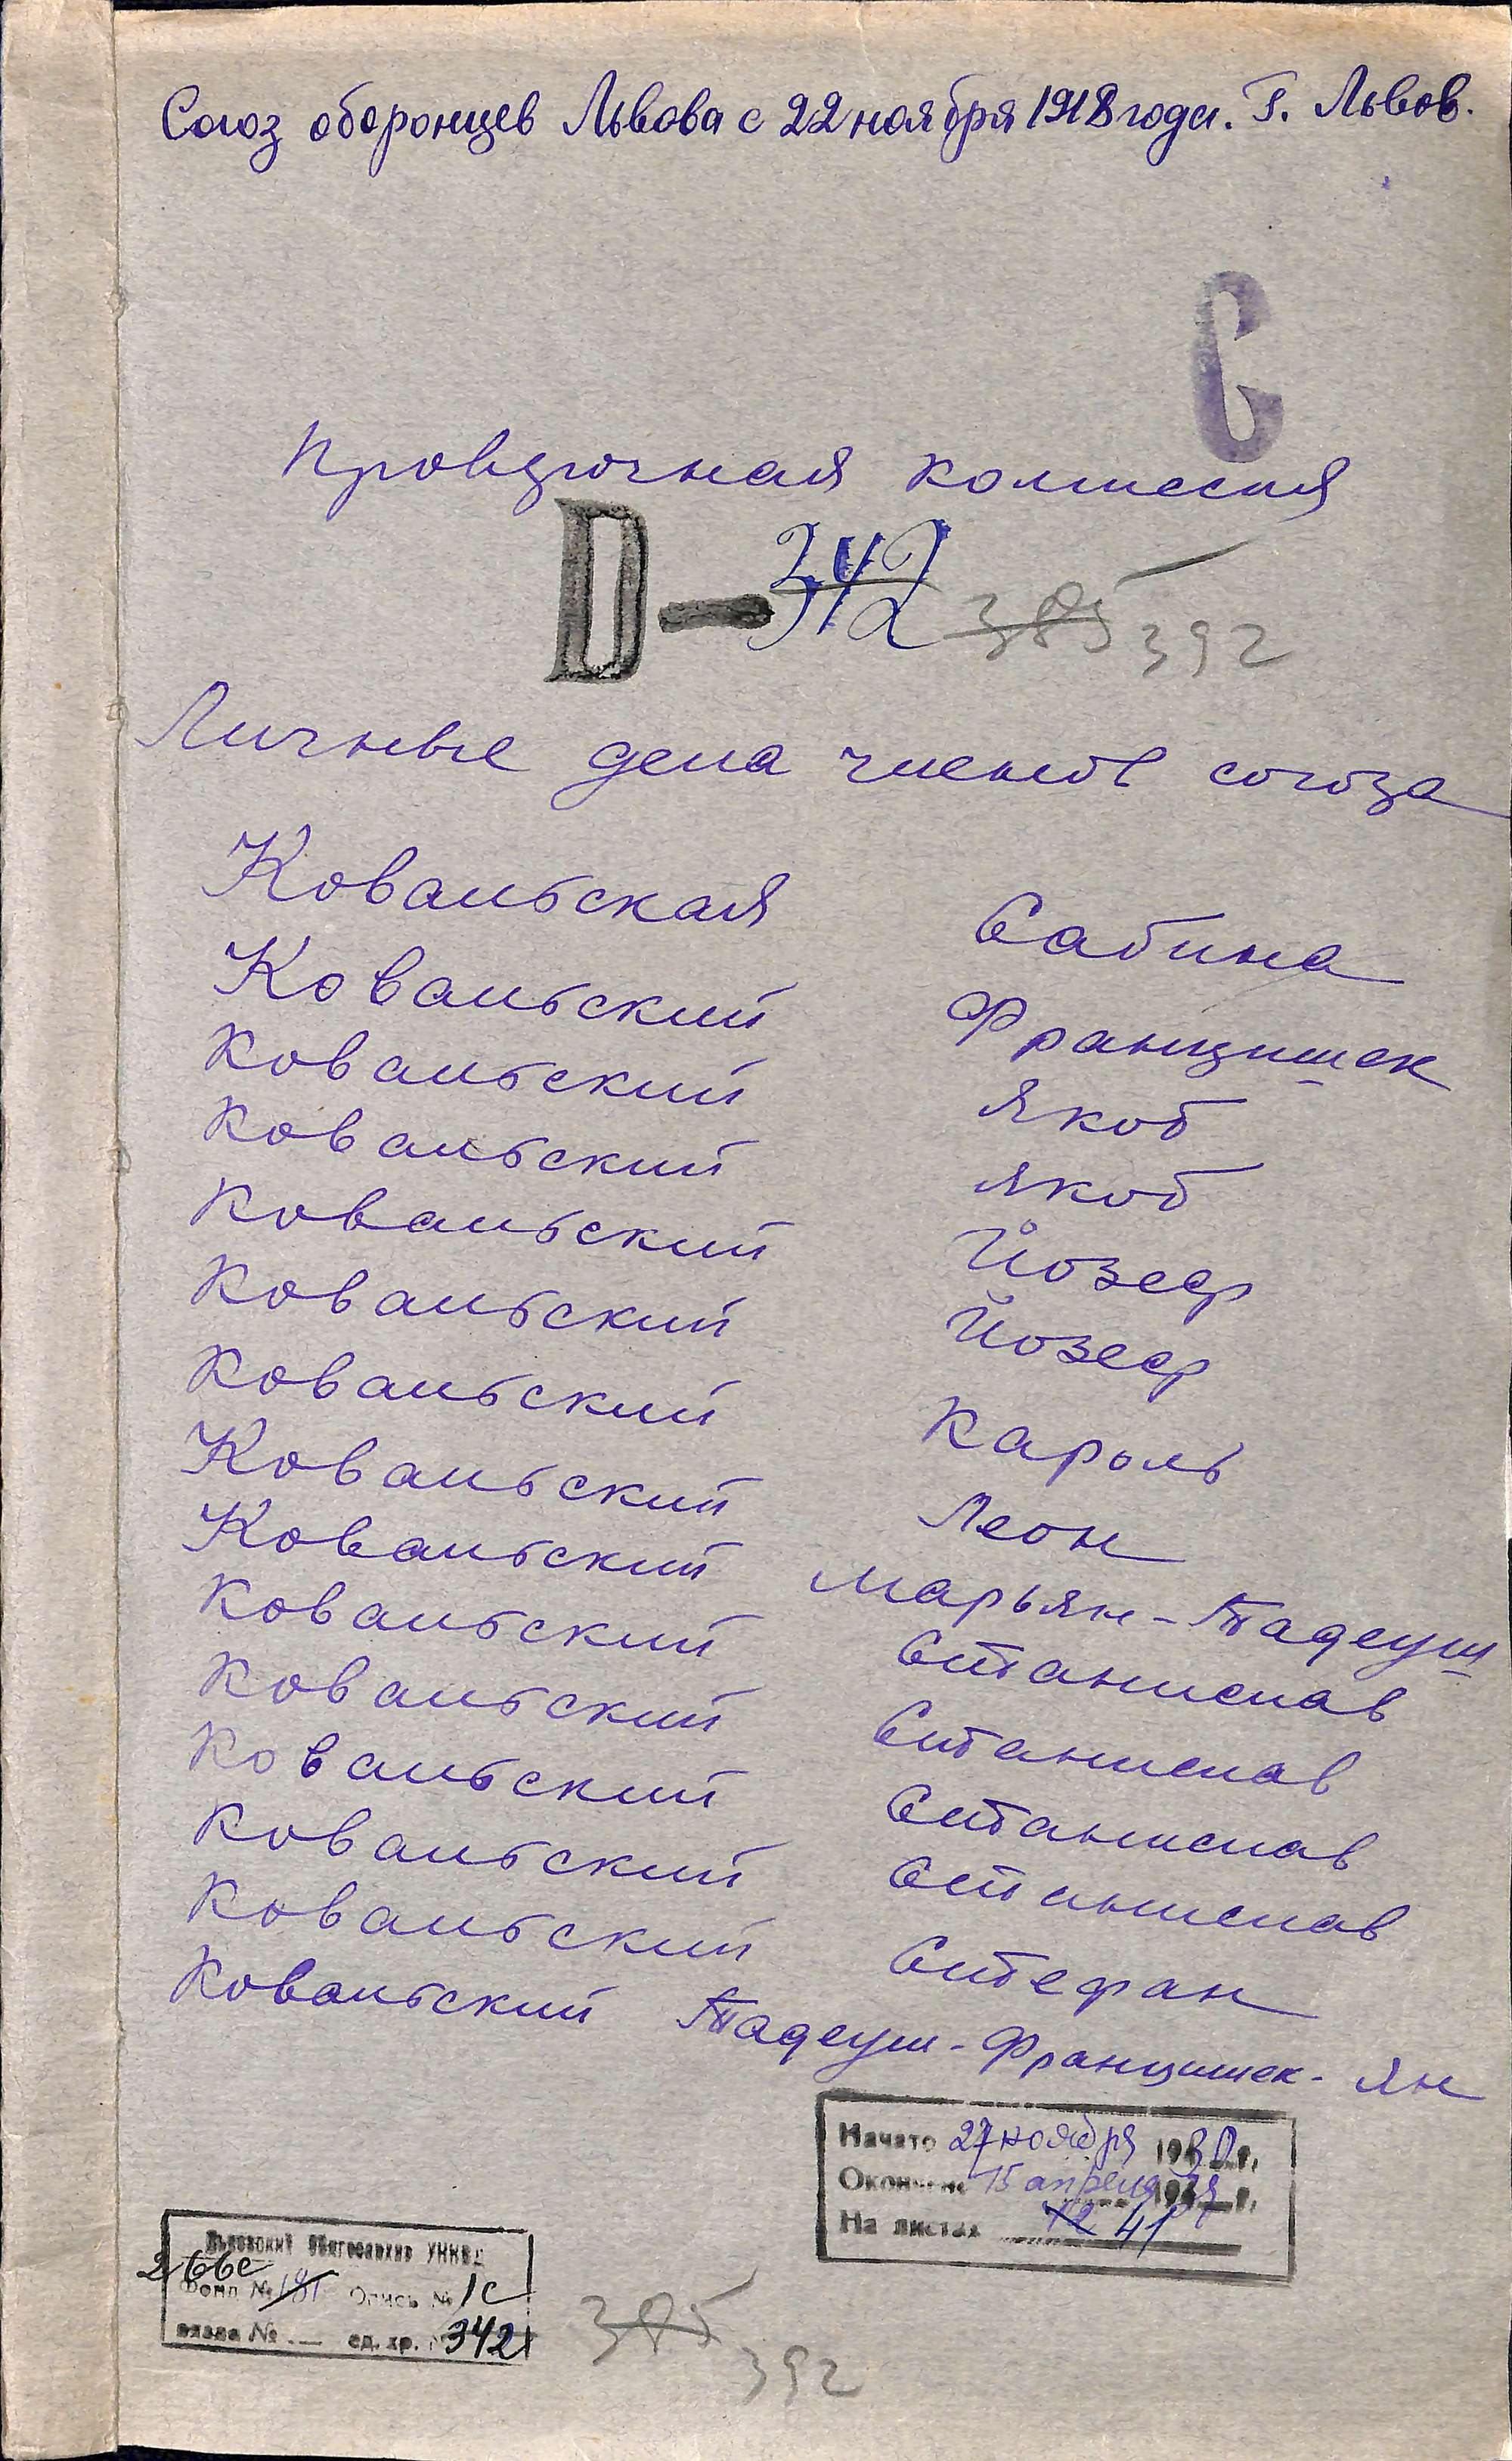 Союз оборонцев Львова с 22 ноября 1918 года. Г. Львов.
С
Проверочная комиссия
D-342 385 392
Личные дела членов союза
Ковальская Сабина
Ковальский Францишек
Ковальский Якоб
Ковальский Якоб
Ковальский Йозеф
Ковальский Йозеф
Ковальский Кароль
Ковальский Леон
Ковальский Марьян-Тадеуш
Ковальский Станислав
Ковальский Станислав
Ковальский Станислав
Ковальский Станислав
Ковальский Стефан
Ковальский Тадеуш-Францишек-Ян
Начато 27 ноября 19 г.
Окончено 15 апреля 19 г.
На листах 41
Львовский Облгосархив УНКВД
266с
Фонд № 181 Опись № 1с
связка № — ед. хр. 342
385
392